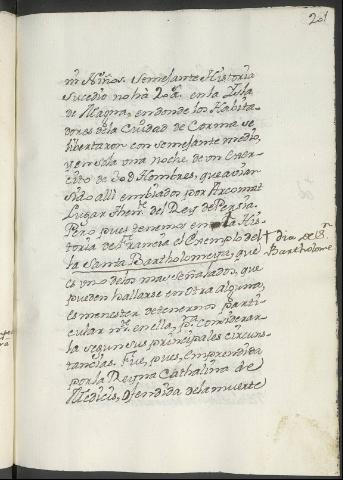 201
ni Niños. Semejante Historia
sucedio no há 20 a.s en la Isla
de Magna, en donde los Habita-
dores de la Ciudad de Corma se
libertaron con semejante medio,
y en sola una noche de un Exer-
cito de 30 d Hombres, que avian
sido alli embiados por Arcomat
Lugar Then.te del Rey de Persia.
Pero pues tenemos en la His-
toria de Francia el Exemplo del + dia de Sn
la Santa Bartholomeya, que Bartholome
es uno de los mas señalados, que
pueden hallarse en otra alguna,
es menester detenernos parti-
cular m.te en ella, p.a considerar-
la segun sus principales circuns-
tancias. Fue, pues, emprendida
por la Reyna Cathalina de
Medicis, ofendida de la muerte